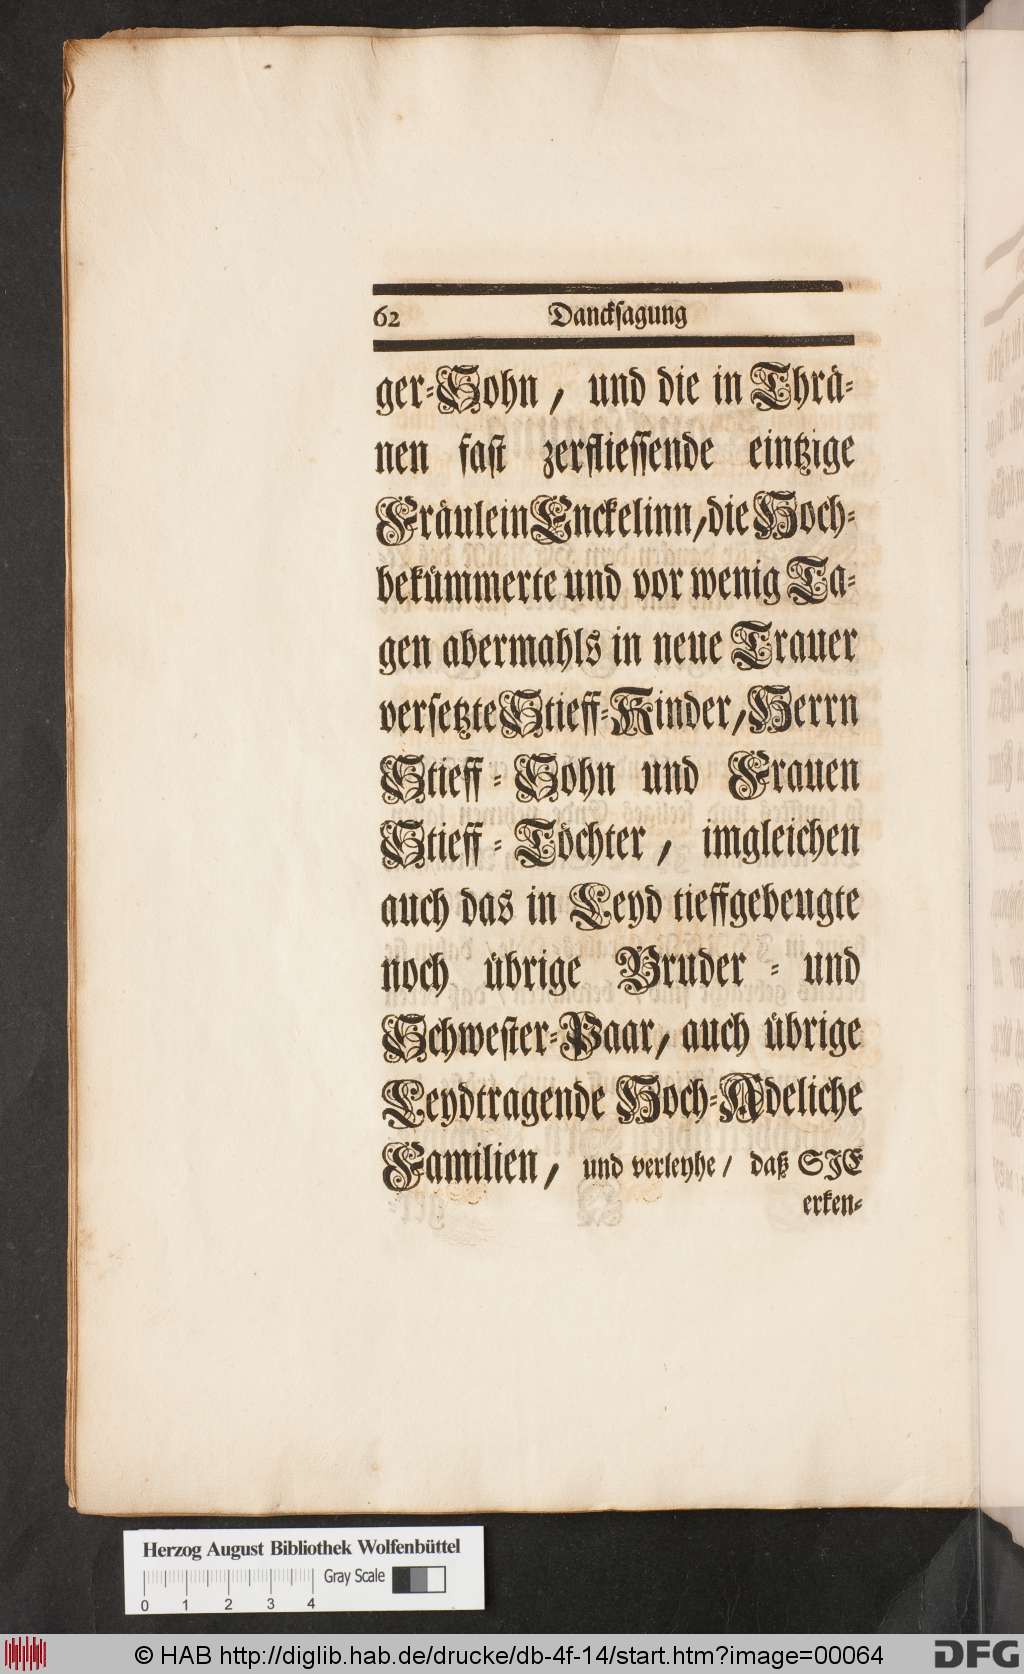 62 Danckſagung
ger-Sohn, und die in Thrä-
nen faſt zerflieſſende eintzige
Fräulein Enckelinn, die Hoch-
bekümmerte und vor wenig Ta-
gen abermahls in neue Trauer
verſetzte Stieff-Kinder, Herrn
Stieff-Sohn und Frauen
Stieff-Töchter, imgleichen
auch das in Leyd tieffgebeugte
noch übrige Bruder- und
Schweſter-Paar, auch übrige
Leydtragende Hoch-Adeliche
Familien, und verleyhe/ daß SIE
erken-
Herzog August Bibliothek Wolfenbüttel
Gray Scale
0 1 2 3 4
© HAB http://diglib.hab.de/drucke/db-4f-14/start.htm?image=00064
DFG